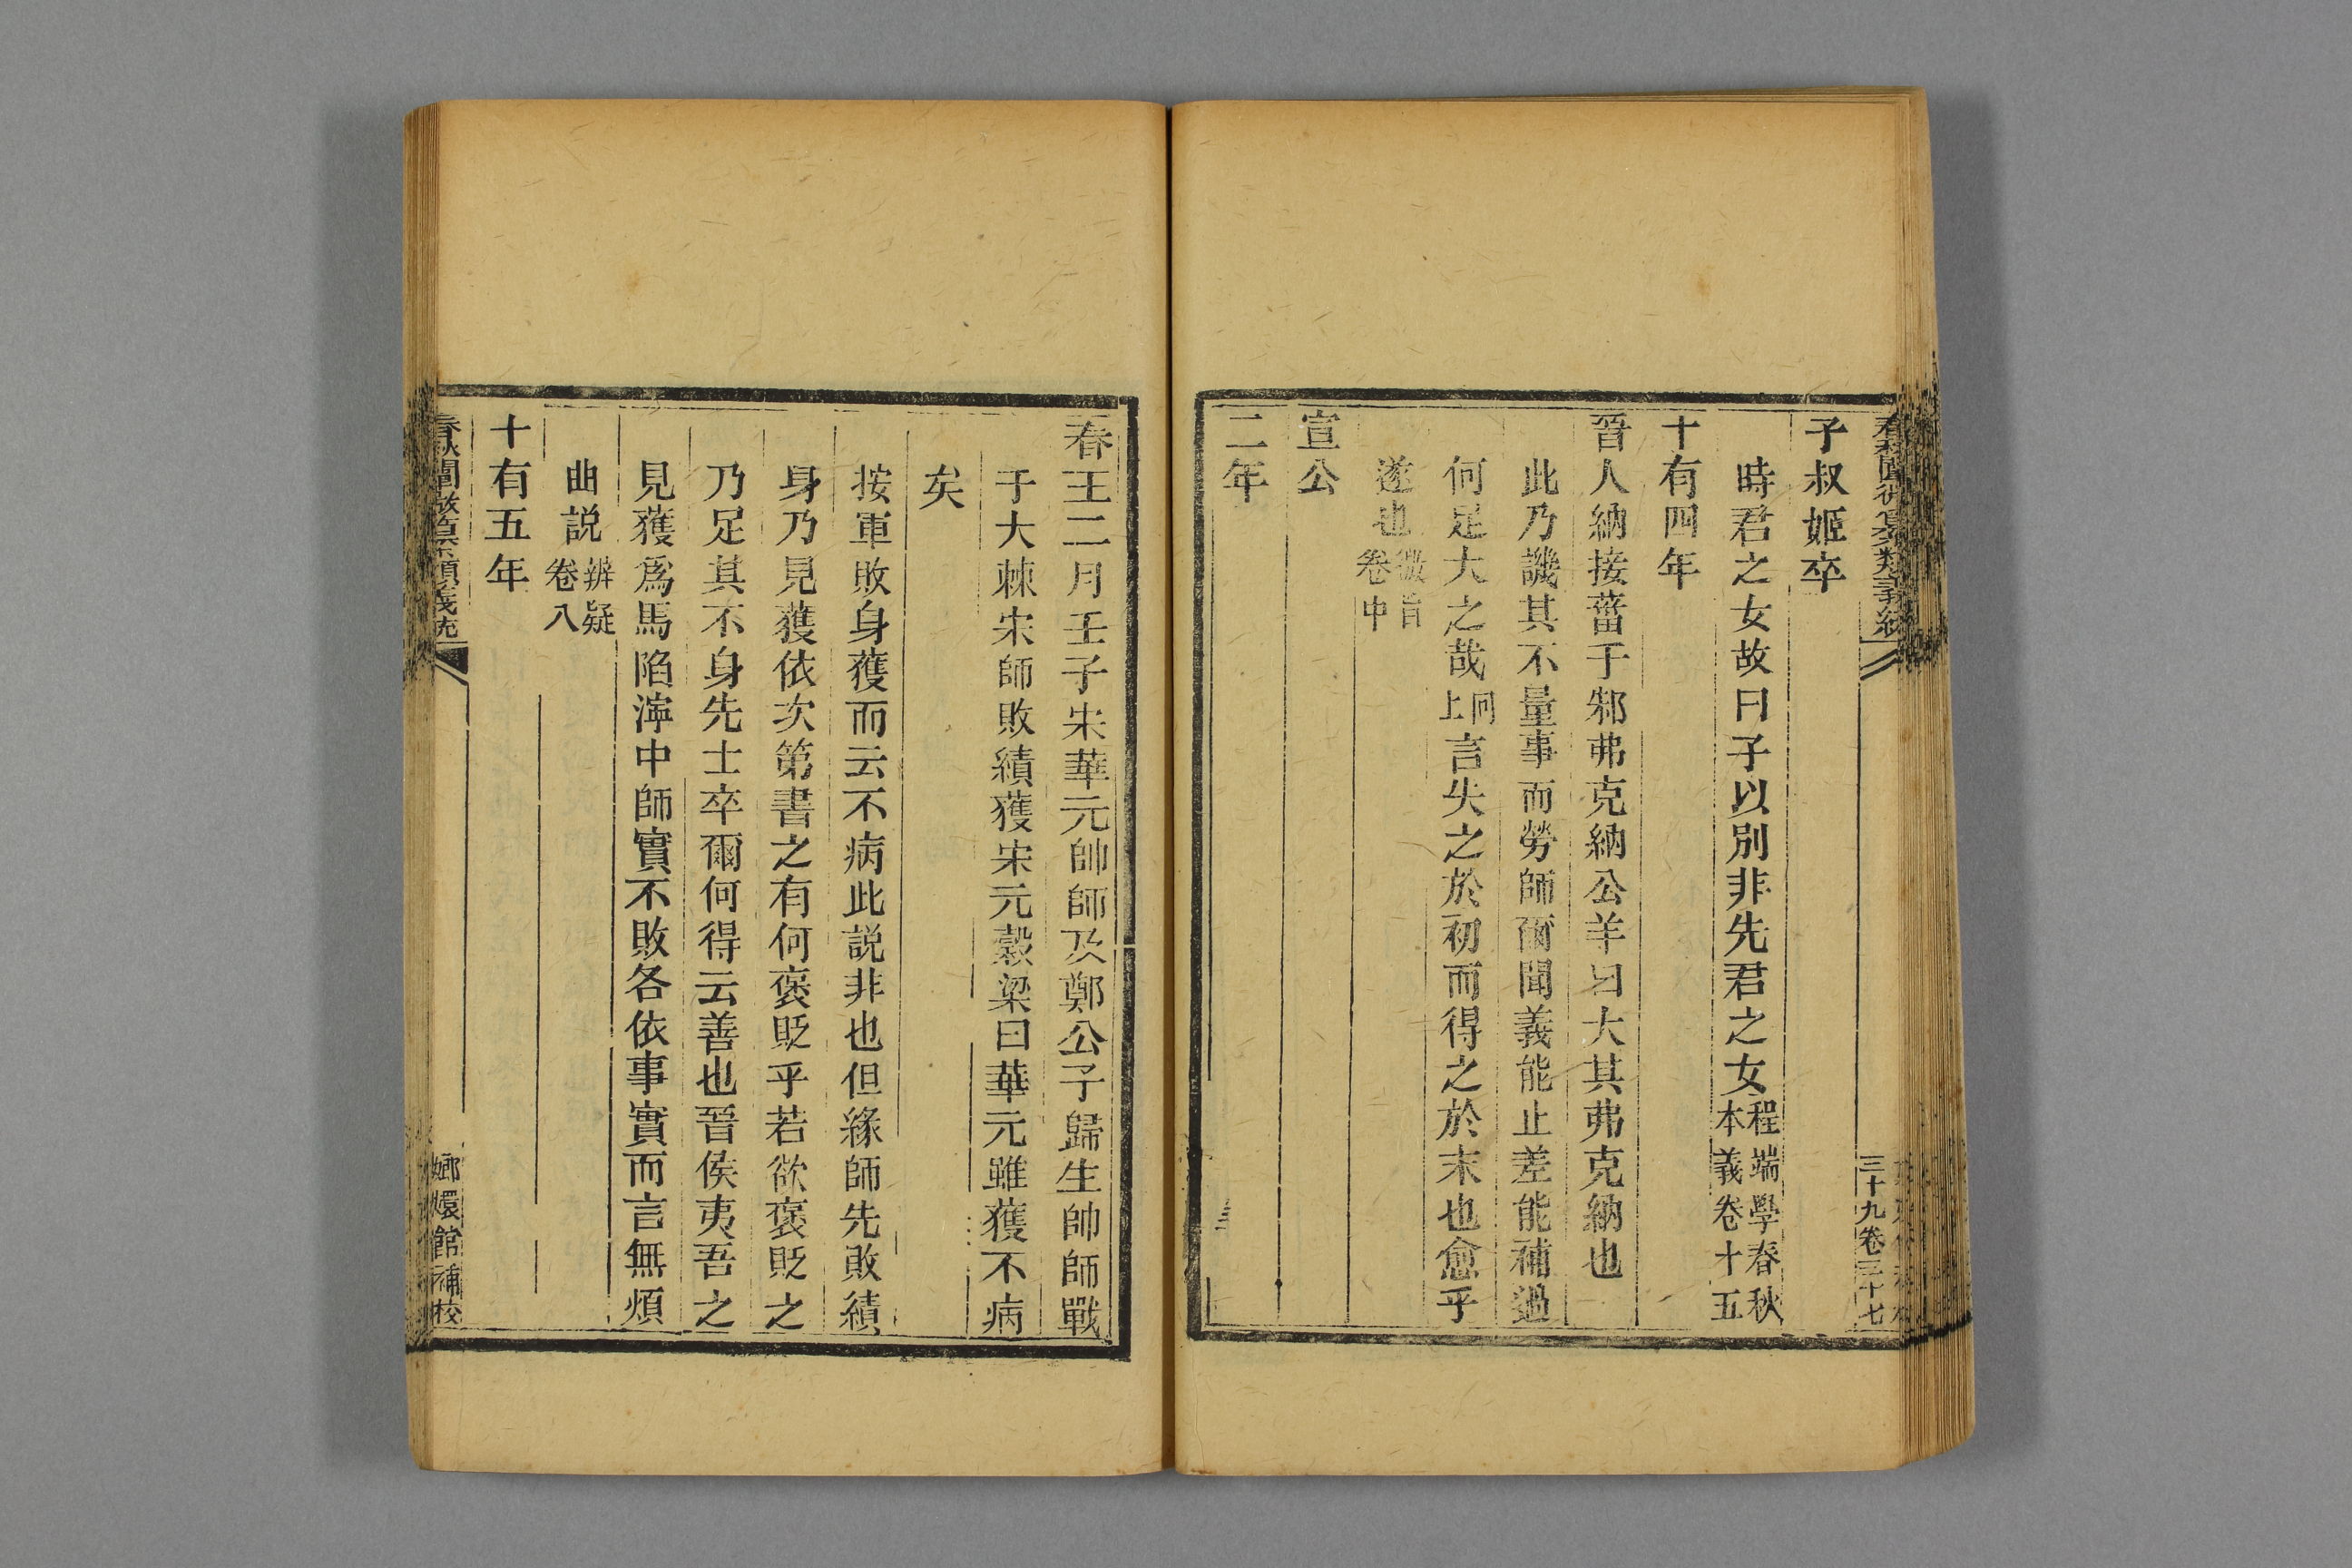 子叔姬卒
時君之女故曰子以別非先君之女程端學春秋本義卷十五
十有四年
晉人納接菑于邾弗克納公羊曰大其弗克納也
此乃譏其不量事而勞師爾聞義能止差能補過
何足大之哉同上言失之於初而得之於末也愈乎
遂也微旨卷中
宣公
二年
春王二月壬子宋華元帥師及鄭公子歸生帥師戰
于大棘宋師敗績獲宋元榖梁曰華元雖獲不病
矣
按軍敗身獲而云不病此説非也但緣師先敗績
身乃見獲依次第書之有何褒貶乎若欲褒貶之
乃足其不身先士卒爾何得云善也晉侯夷吾之
見獲爲馬陷濘中師實不敗各依事實而言無煩
曲説辨疑卷八
十有五年
三十九卷三十七
嫏嬛館補校